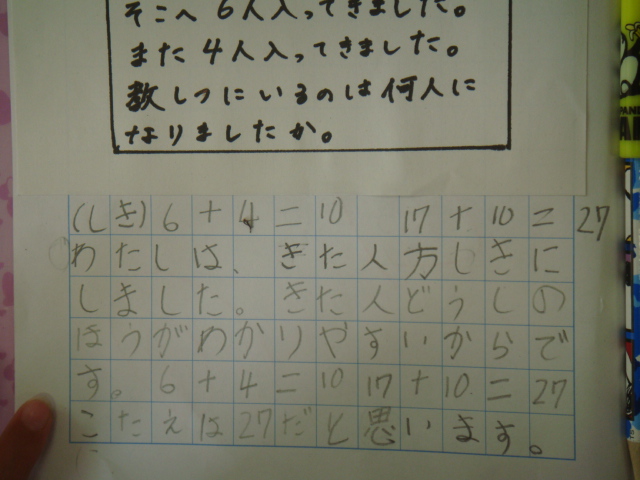 そこへ6人入ってきました。
また4人入ってきました。
教しつにいるのは何人に
なりましたか。
(しき)6+4=10 17+10=27
わたしは、きた人方しきに
しました。きた人どうしの
ほうがわかりやすいからで
す。6+4=10 17+10=27
こたえは27だと思います。